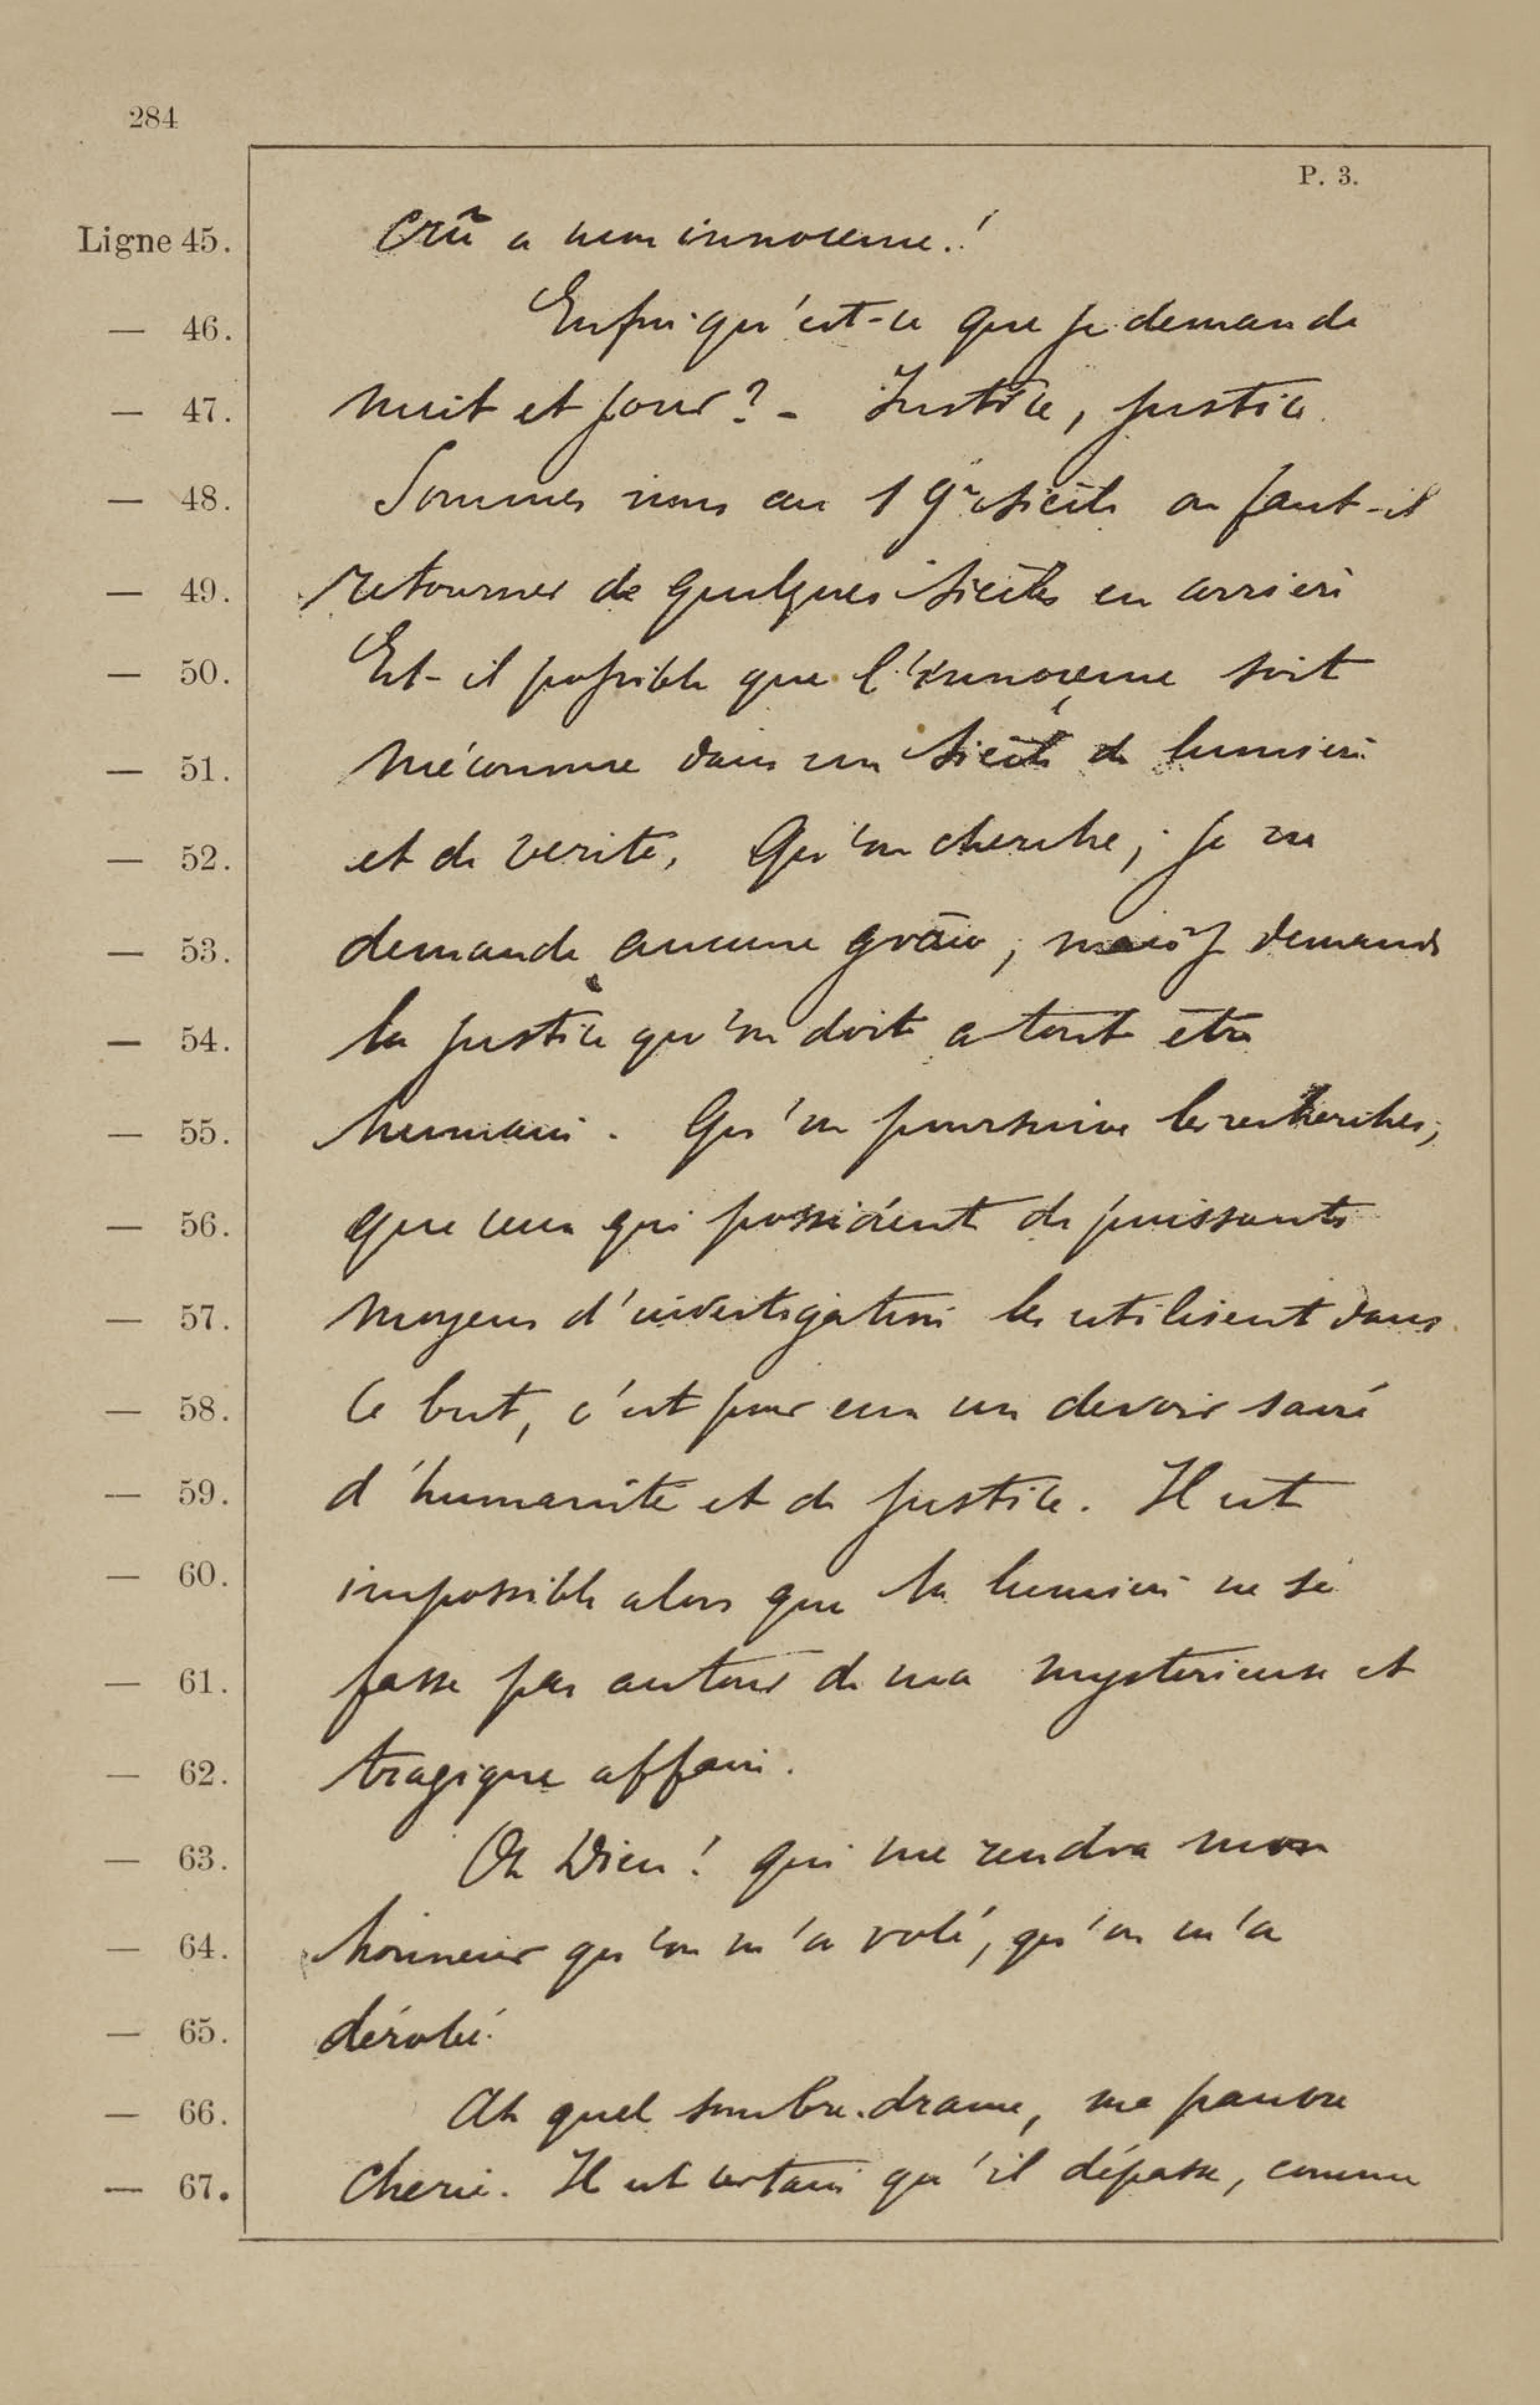 284
P. 3.
Ligne 45. Crû a mon innocence.!
— 46. Enfin qu'est-ce que je demande
— 47. nuit et jour? - Justice, justice.
— 48. Sommes nous au 19e siècle ou faut-il
— 49. retourner de quelques siècles en arrière
— 50. Est-il possible que l'innocence soit
— 51. méconnue dans un siècle de lumière
— 52. et de verité, Qu'on cherche; je ne
— 53. demande aucune grâce, mais je demande
— 54. la justice qu'on doit a tout être
— 55. humain. Qu'on poursuive les recherches;
— 56. que ceux qui possèdent de puissants
— 57. moyens d'investigation les utilisent dans
— 58. ce but, c'est pour eux un devoir sacré
— 59. d'humanité et de justice. Il est
— 60. impossible alors que la lumière ne se
— 61. fasse pas autour de ma mysterieuse et
— 62. tragique affaire.
— 63. Oh Dieu! qui me rendra mon
— 64. honneur qu'on m'a volé, qu'on m'a
— 65. dérobé.
— 66. Ah quel sombre drame, ma pauvre
— 67. Cherie. Il est certain qu'il dépasse, comme